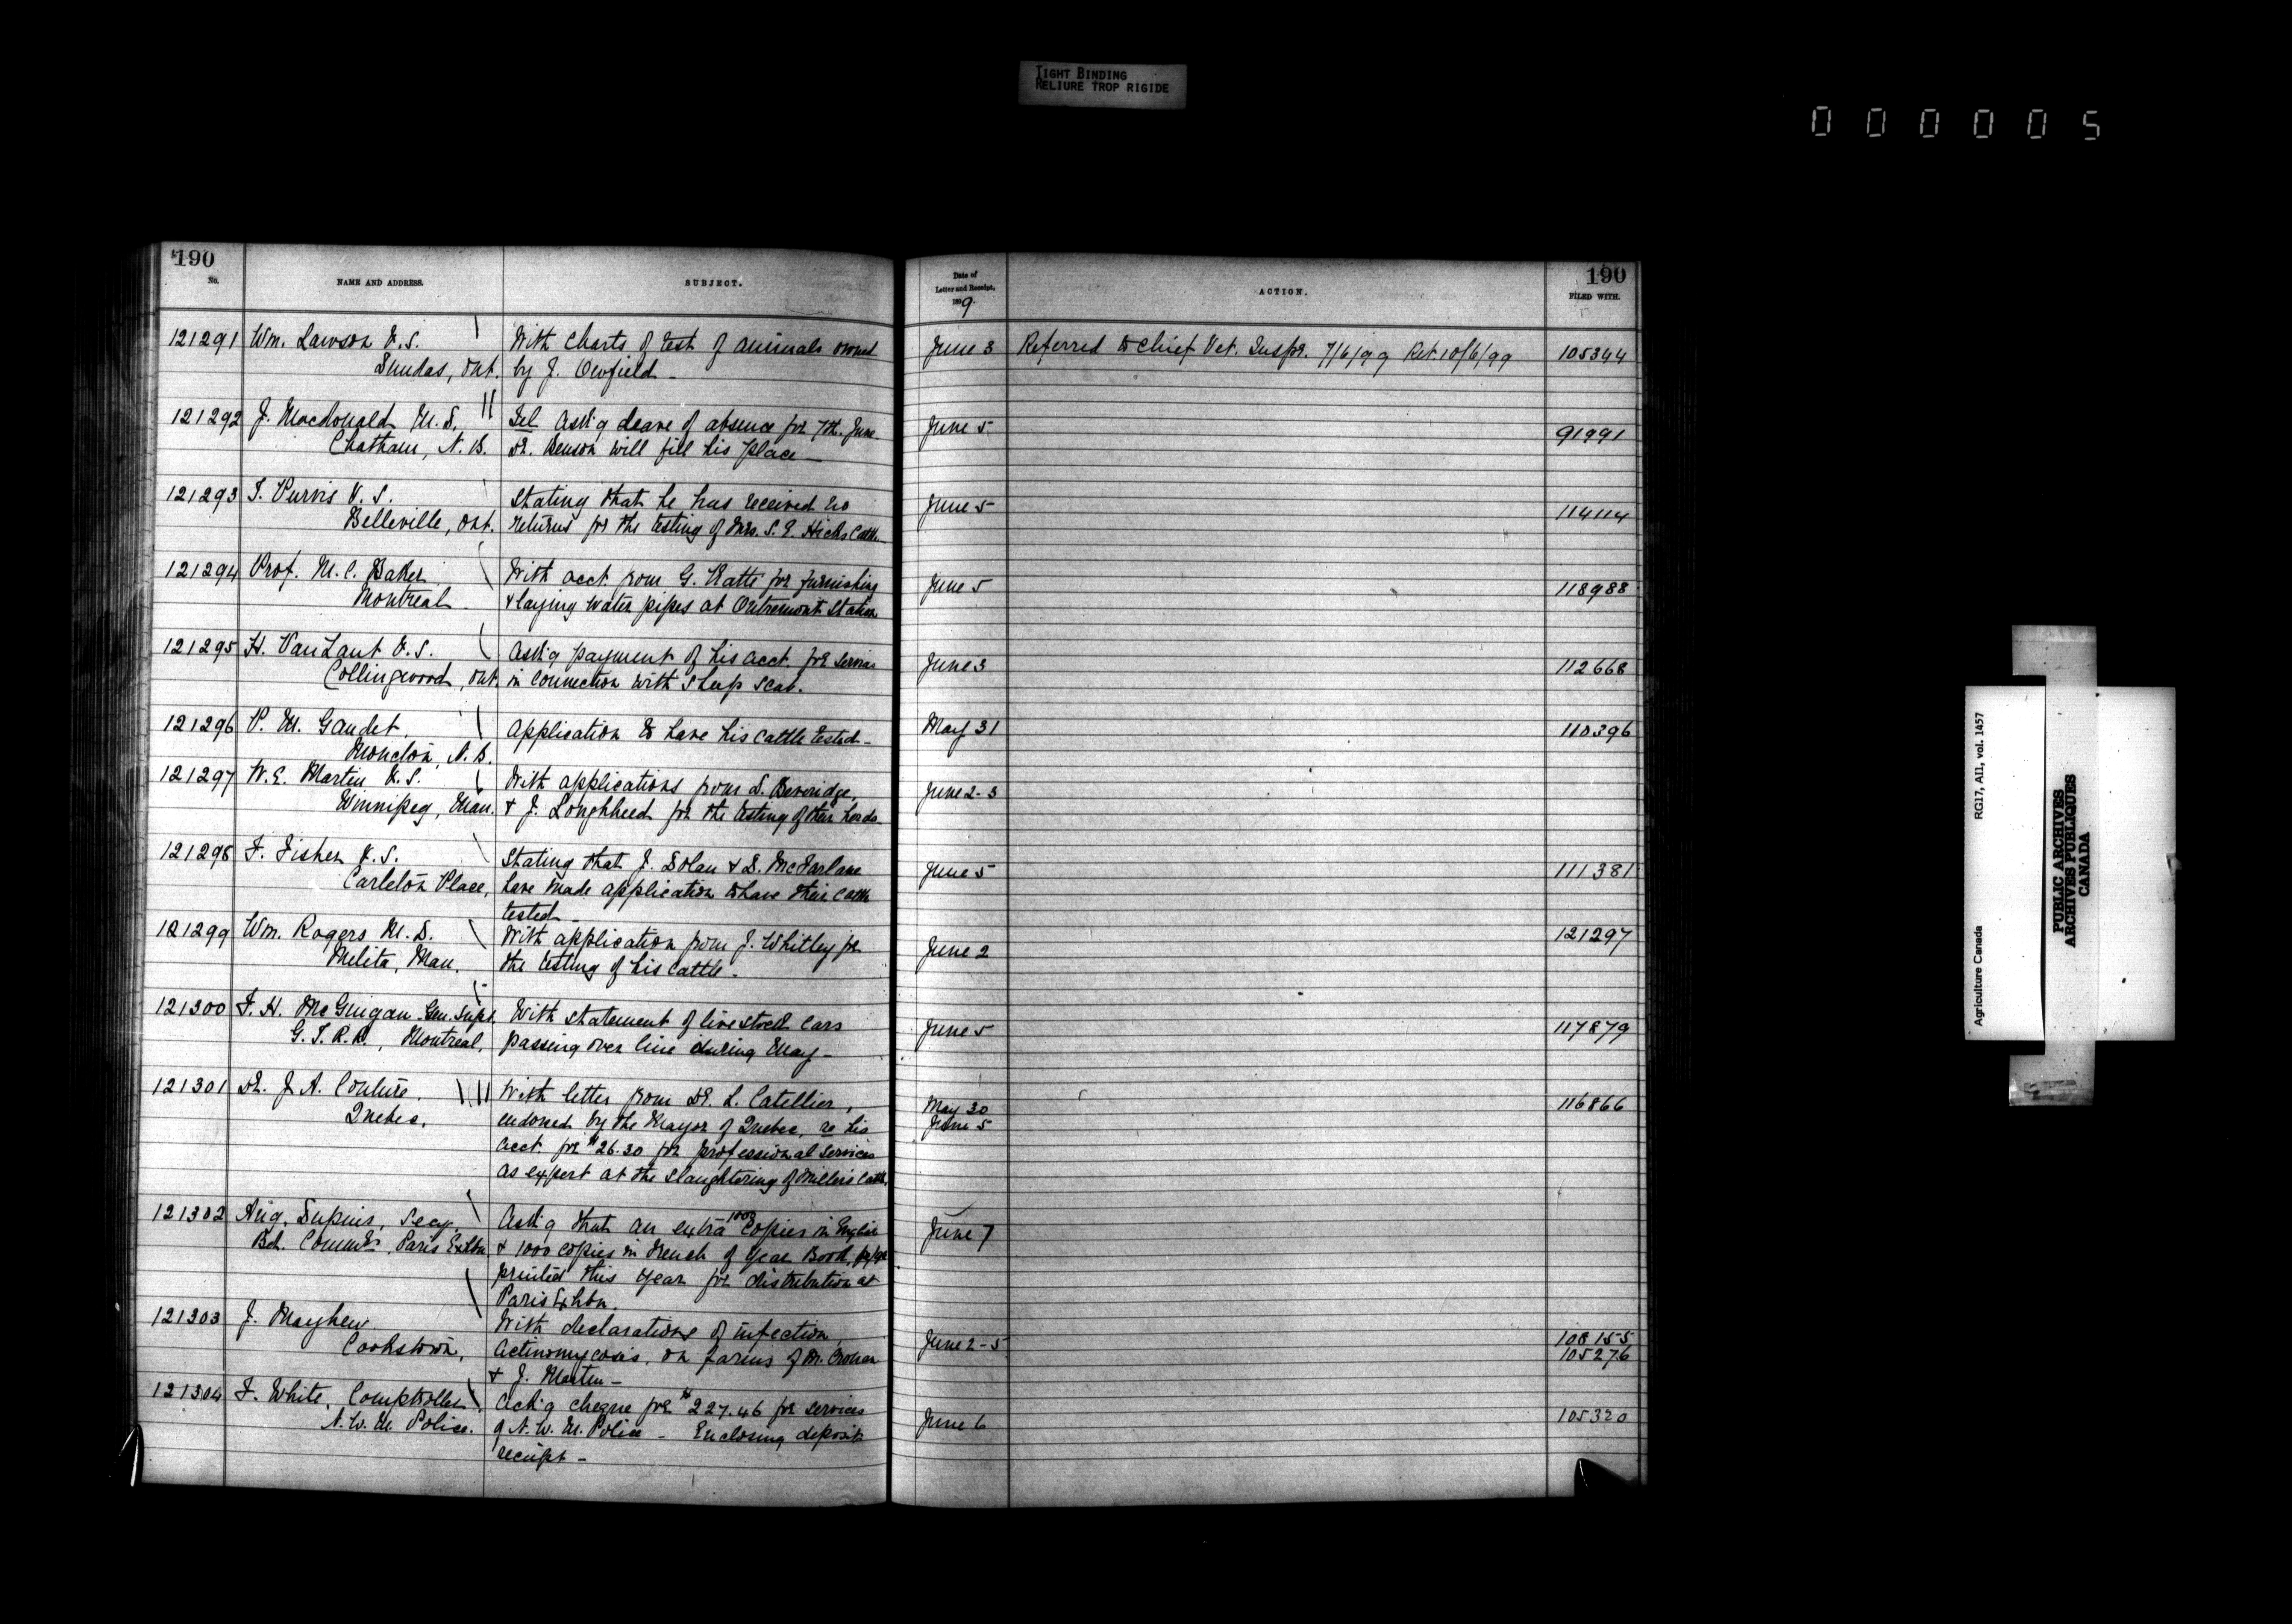 TIGHT BINDING
RELIURE TROP RIGIDE
000005
190
No.
NAME AND ADDRESS.
SUBJECT.
Date of
Letter and Receipt,
1899.
ACTION.
190
FILED WITH.
121291 Wm. Lawson V.S. With charts of test of animals owned June 3 Referred to Chief Vet. Inspr. 7/6/99 Ret. 10/6/99 105344
Dundas, Ont. by J.
121292 J. Macdonald M.D. Tel Ask'g leave of absence for 7th. June June 5 91991
Chatham, N.B. Dr. Benson will fill his place —
121293 T. Purvis V.S. Stating that he has received no June 5 114114
Belleville, Ont. returns for the testing of Mrs. S. E. Hicks Cattle
121294 Prof. M. C. Baker With acct. from G. Ratté for furnishing June 5 118988
Montreal & laying water pipes at Outremont Station
121295 H. VanZant V.S. Ask'g payment of his acct. for services June 3 112668
Collingwood, Ont. in connection with Sheep Scab.
121296 P. M. Gaudet, Application to have his cattle tested — May 31 110396
Moncton, N.B.
121297 W. E. Martin V.S. With applications from S. Beveridge, June 2-3
Winnipeg, Man. & J. Loughheed for the testing of their herds
121298 F. Fisher V.S. Stating that J. Dolan & D. McFarlane June 5 111381
Carleton Place, have made application to have their cattle
tested —
121299 Wm. Rogers M.D. With application from J. Whitley for June 2 121297
Melita, Man. the testing of his cattle —
121300 F. H. McGuigan Gen. Supt. With statement of live stock cars June 5 117879
G.T.R.R., Montreal, passing over line during May —
121301 Dr. J. A. Couture. With letter from Dr. L. Catellier, May 30 116866
Quebec. endorsed by the Mayor of Quebec, re his June 5
acct. for $26.30 for professional services
as expert at the slaughtering of Millers cattle.
121302 Aug. Dupuis, Secy. Ask'g that an extra 1000 copies in English June 7
Bd. Commrs. Paris Exhbn & 1000 copies in French of Year Book, be
printed this year for distribution at
Paris Exhbn.
121303 J. Mayhew. With declarations of infection, June 2-5 108155
Cookstown, Actinomycosis, on farms of M. 105276
& J. Martin —
121304 F. White, Comptroller, Ask'g cheque for $227.46 for services June 6 105320
N.W.M. Police. of N.W.M. Police — Enclosing deposit
receipt —
Agriculture Canada RG17, AII, vol. 1457
PUBLIC ARCHIVES
ARCHIVES PUBLIQUES
CANADA